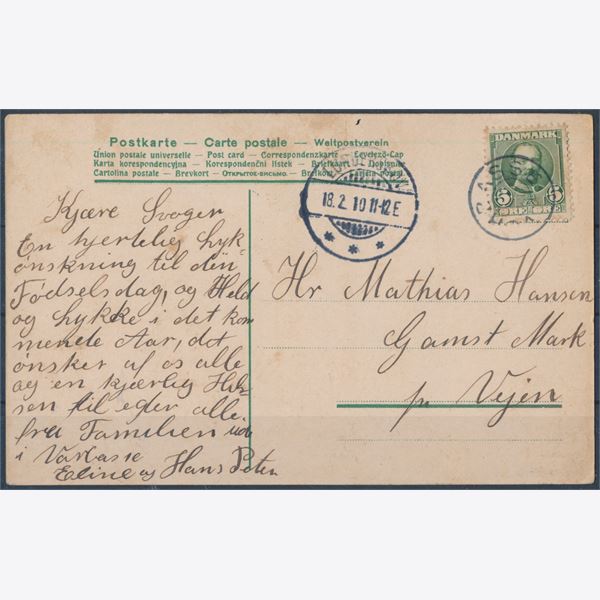 Postkarte – Carte postale – Weltpostverein
Union postale universelle – Post card – Correspondenzkarte – Levelező-Lap
Karta korespondencyjna – Korespondenční lístek – Briefkaart – Dopisnice
Cartolina postale – Brevkort – Открытое письмо. – Brefkort
DANMARK
5 5
ØRE ØRE
18.2.10 11-12E
Kjære Svoger
En hjertelig Lyk
ønskning til din
Fødselsdag, og Held
og Lykke i det kom
mende Aar, det
ønsker af os alle
og en kjærlig Hil
sen til eder alle.
fra Familien
i
Eline og Hans Peter
Hr Mathias Hansen
Gamst Mark
pr Vejen